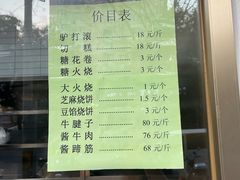 价目表
驴打滚 18 元/斤
切糕 18 元/斤
糖花卷 3 元/个
糖火烧 3 元/个
大火烧 1 元/个
芝麻烧饼 1.5 元/个
豆馅烧饼 3 元/个
牛腱子 80 元/斤
酱牛肉 76 元/斤
酱蹄筋 68 元/斤